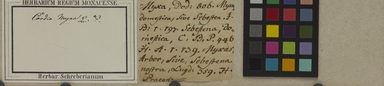 HERBARIUM REGIUM MONACENSE.
Cordia Myxa L.
Herbar. Schreberianum
Myxa, Dod: 806. Myxa
domestica, sive Sebesten I.
B: 1. 197. Sebestena, Do,
mestica, C. B. P. 446
H. A. 1. 139. Myxas,
Arbor, sive, Sebestena
nostra, Lugd: 359. H.